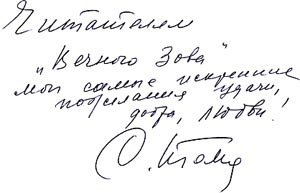 Читателям
„Вечного Зова“
мои самые искренние
пожелания удачи,
добра, любви!